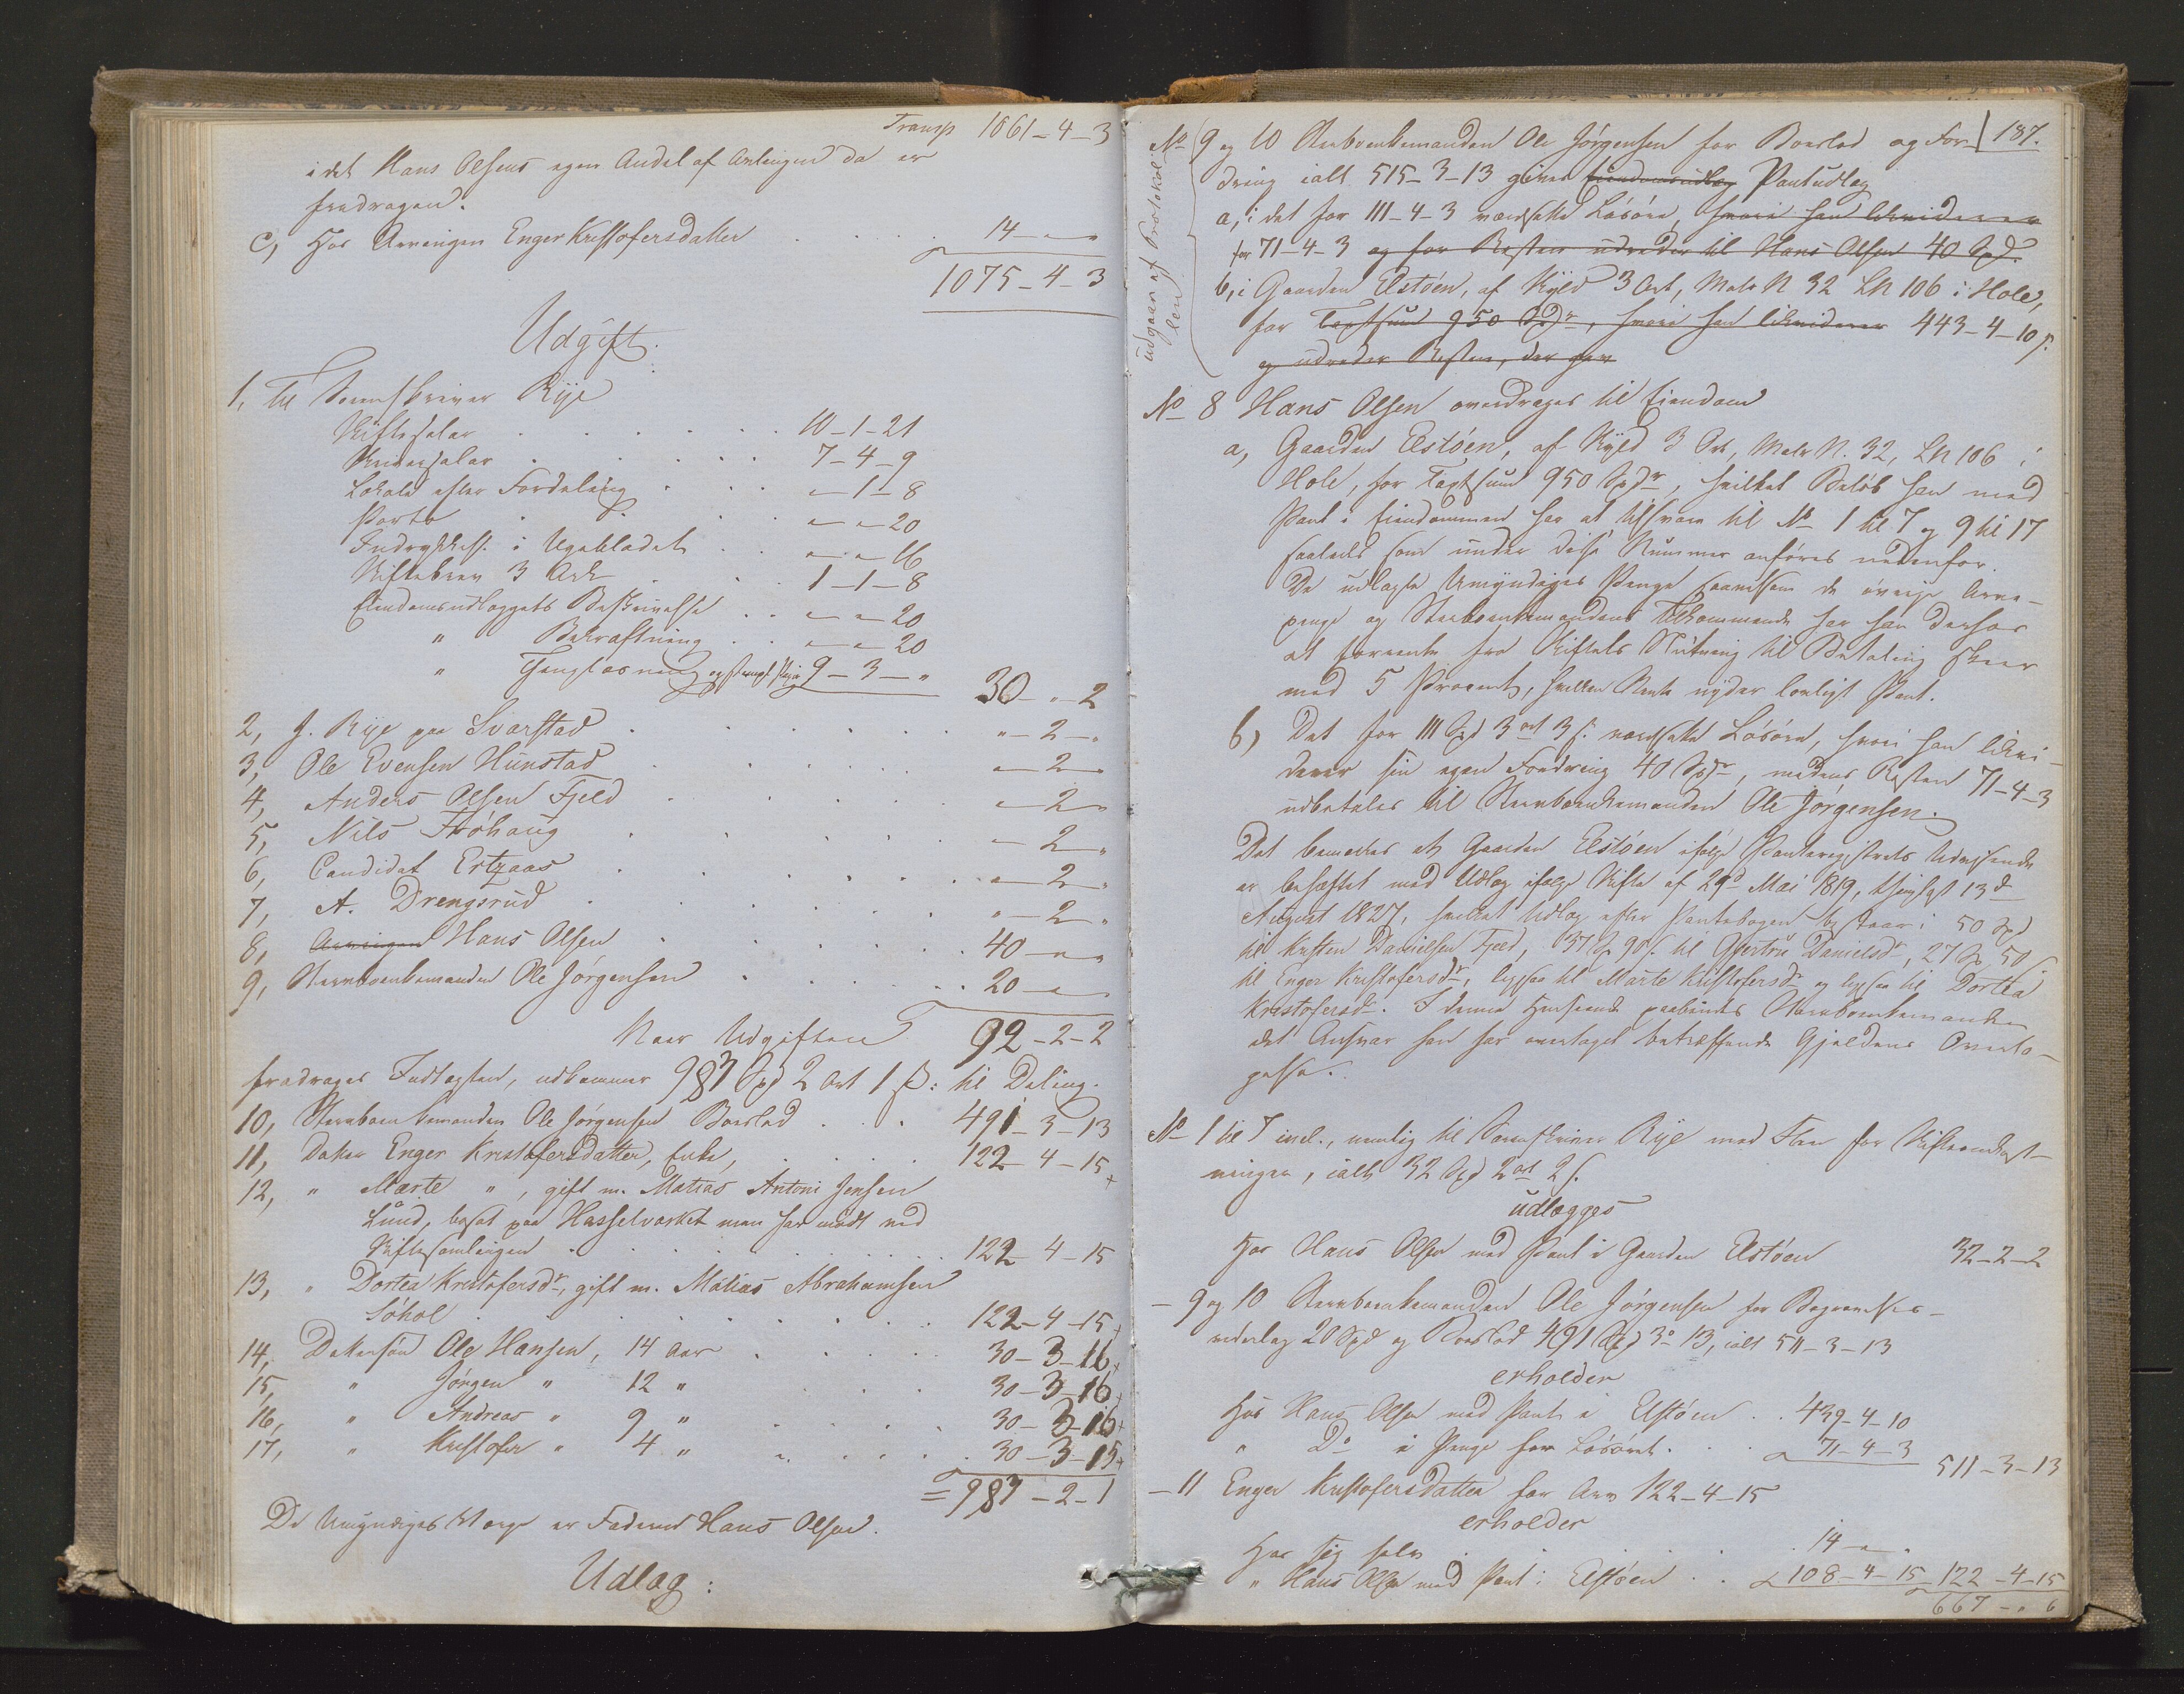 Transp 1061-4-3
idet Hans Olsens egen Andel af Avlingen da er
fradragen.
c, Hos Arvingen Enger Kristofersdatter . . . 14 - " - "
1075-4-3
Udgift.
1, Til Sorenskriver Rye
Skiftesalær . . . . . . 10-1-21
Skriversalær . . . . . 7-4-9
Lokale efter Fordeling . . . "-1-8
Porto . . . . "-"-20
Indrykkelse i Ugebladet . . "-"-16
Skiftebrev 3 Ark . . . 1-1-8
Eiendomsudlæggets Beskrivelse . . "-"-20
" Bekræftning . . "-"-20
" Tinglæsning og stemplt Papir 9-3-"
30-"-2
2, J. Rye paa Svarstad . . . . . . "-2-"
3, Ole Evensen Hunstad . . . . . "-2-"
4, Anders Olsen Fjeld . . . . . "-2-"
5, Nils Fröhaug . . . . . "-2-"
6, Candidat Ertzaas . . . . . "-2-"
7, A. Drengsrud . . . . . "-2-"
8, Arvingen Hans Olsen . . . . . 40-"-"
9, Stervboenkemanden Ole Jörgensen . . . . 20-"-"
Naar Udgiften 92-2-2
fradrages Indtægten, udkommer 983 Spd 2 Ort 1 ß: til Deling.
10, Stervboenkemanden Ole Jörgensen Boeslod . . . 491-3-13
11, Datter Enger Kristofersdatter, Enke, . . . . 122-4-15
12, " Marte " , gift m. Matias Antoni Jensen
Lund, bosat paa Hasselverket men har mødt ved
Skiftesamlingen . . . . . . . 122-4-15
13, " Dortea Kristofersdr, gift m. Matias Abrahamsen
Söhol . . . . . . . 122-4-15
14, Dattersön Ole Hansen, 14 Aar . . . . 30-3-16
15, " Jörgen " 12 " . . . 30-3-16
16, " Andreas " 9 " . . . . 30-3-16
17, " Kristofer " 4 " . . . . 30-3-15
=983-2-1
De Umyndiges Værge er Faderen Hans Olsen.
Udlæg:
187.
udgaar af Protokol
len
No 9 og 10 Stervboenkemanden Ole Jörgensen for Boeslod og For-
dring ialt 515-3-13 gives Eiendomsudlæg Pantudlæg
a, i det for 111-4-3 værdsatte Lösöre, hvori han likviderer
for 71-4-3 og for Resten udreder til Hans Olsen 40 Spd.
b, i Gaarden Elstöen, af Skyld 3 Ort, Matr N 32 LN 106 i Hole,
for Taxtsum 950 Spdr, hvori han likviderer 443-4-10 s.
og udreder Resten, der har
No 8 Hans Olsen overdrages til Eiendom
a, Gaarden Elstöen, af Skyld 3 Ort, Matr N. 32, LN 106 i
Hole, for Taxtsum 950 Spdr, hvilket Belöb han med
Pant i Eiendommen har at tilsvare til No 1 til 7 og 9 til 17
saaledes som under disse Nummer anföres nedenfor.
De udlagte Umyndiges Penge saavelsom de övrige Arve-
penge og Stervboenkemandens Tilkommende har han derfor
at forrente fra Skiftets Slutning til Betaling skeer
med 5 Procent, hvilken Rente nyder lovligt Pant.
b) Det for 111 Spd 3 ort 3 s. værdsatte Lösöre, hvori han likvi-
derer sin egen Fordring 40 Spdr, medens Resten 71-4-3
udbetales til Stervboenkemanden Ole Jörgensen.
Det bemærkes at Gaarden Elstöen ifölge Panteregistrets Udvisende
er behæftet med Udlæg ifölge Skifte af 29d Mai 1819, thinglyst 13d
August 1827, hvilket Udlæg efter Pantebogen bestaar i 50 Spd
til Kristen Danielsen Fjeld, 37 Sp 90 s. til Gjertru Danielsdr, 27 Sp 50
til Enger Kristofersdr, ligesaa til Marte Kristofersdr og ligesaa til Dortea
Kristofersdr. I denne Henseende paabindes Stervboenkemanden
det Ansvar han har overtaget betræffende Gjældens Overto-
gelse.
No 1 til 7 incl., nemlig til Sorenskriver Rye med Flere for Skifteomkost-
ninger, ialt 32 Spd 2 ort 2 s.
udlægges
Hos Hans Olsen med Pant i Gaarden Elstöen 32-2-2
- 9 og 10 Stervboenkemanden Ole Jörgensen for Begravelses-
vederlag 20 Spd og Boeslod 491 Spd 3o 13, ialt 511-3-13
erholder
Hos Hans Olsen med Pant i Elstöen . . 439-4-10
" Do i Penge for Lösöret . . 71-4-3
511-3-13
- 11 Enger Kristofersdatter for Arv 122-4-15
erholder
Hos sig selv . . . . . 14-"-"
" Hans Olsen med Pant i Elstöen . . 108-4-15 122-4-15
667-"-6